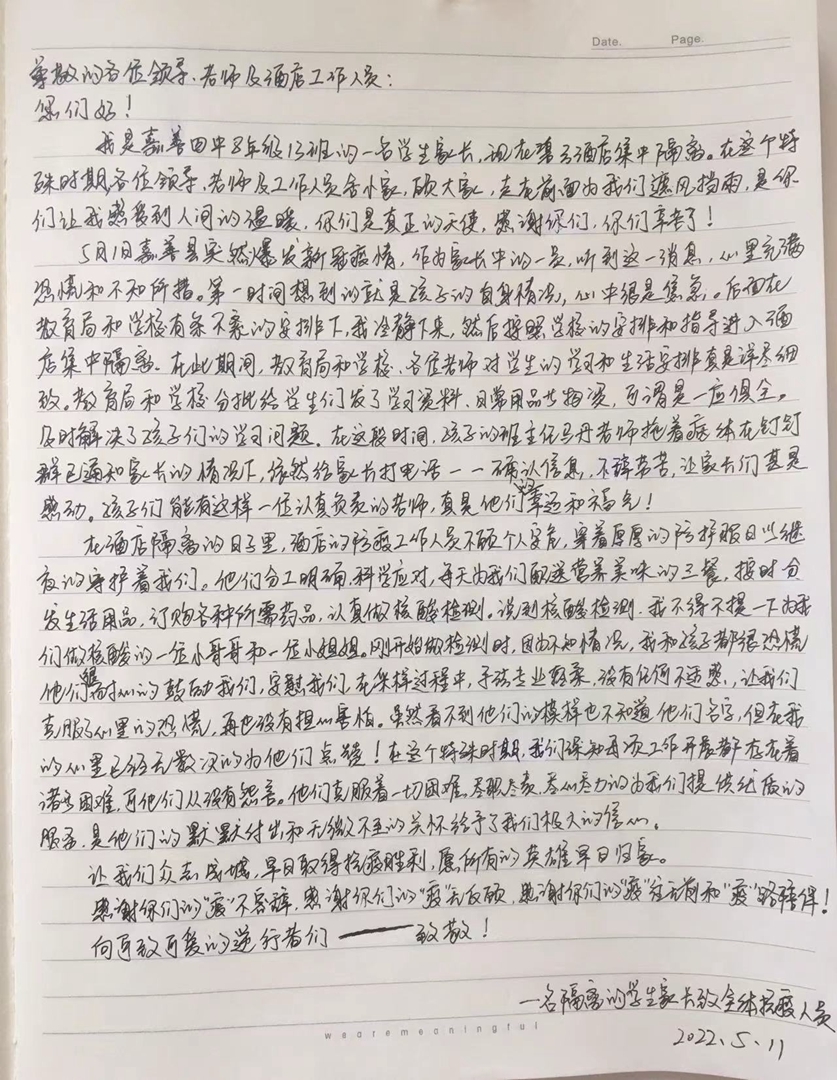 Date.    Page.
尊敬的各位领导、老师及酒店工作人员：
您们好！
我是嘉善四中8年级13班的一名学生家长，现在碧云酒店集中隔离。在这个特
殊时期，各位领导、老师及工作人员舍小家，顾大家，走在前面为我们遮风挡雨，是你
们让我感受到人间的温暖，你们是真正的天使，感谢你们，你们辛苦了！
5月1日嘉善县突然爆发新冠疫情，作为家长中的一员，听到这一消息，心里充满
恐慌和不知所措。第一时间想到的就是孩子的自身情况，心中很是焦急。后面在
教育局和学校有条不紊的安排下，我冷静下来，然后按照学校的安排和指导进入酒
店集中隔离。在此期间，教育局和学校、各位老师对学生的学习和生活安排真是详尽细
致。教育局和学校分批给学生们发了学习资料、日常用品等物资，可谓是一应俱全。
及时解决了孩子们的学习问题。在这段时间，孩子的班主任马丹老师拖着病体在钉钉
群已通知家长的情况下，依然给家长打电话一一确认信息，不辞劳苦，让家长们甚是
感动。孩子们能有这样一位认真负责的老师，真是他们的幸运和福气！
在酒店隔离的日子里，酒店的防疫工作人员不顾个人安危，穿着厚厚的防护服日以继
夜的守护着我们。他们分工明确，科学应对，每天为我们配送营养美味的三餐，按时分
发生活用品，订购各种所需药品，认真做核酸检测。说到核酸检测，我不得不提一下为我
们做核酸的一位小哥哥和一位小姐姐。刚开始做检测时，因为不知情况，我和孩子都很恐慌
他们耐心的鼓励我们，安慰我们，在采样过程中，手法专业轻柔，没有任何不适感，让我们
克服了心里的恐慌，再也没有担心害怕。虽然看不到他们的模样也不知道他们名字，但在我
的心里已经无数次的为他们点赞！在这个特殊时期，我们深知每项工作开展都存在着
诸多困难，可他们从没有怨言。他们克服着一切困难，尽职尽责，尽心尽力的为我们提供优质的
服务，是他们的默默付出和无微不至的关怀给予了我们极大的信心。
让我们众志成城，早日取得抗疫胜利，愿所有的英雄早日归家。
感谢你们的“疫”不容辞，感谢你们的“疫”无反顾，感谢你们的“疫”往无前和“疫”路陪伴！
向可敬可爱的逆行者们——致敬！
一名隔离的学生家长致全体抗疫人员
2022.5.11
wearemeaningful